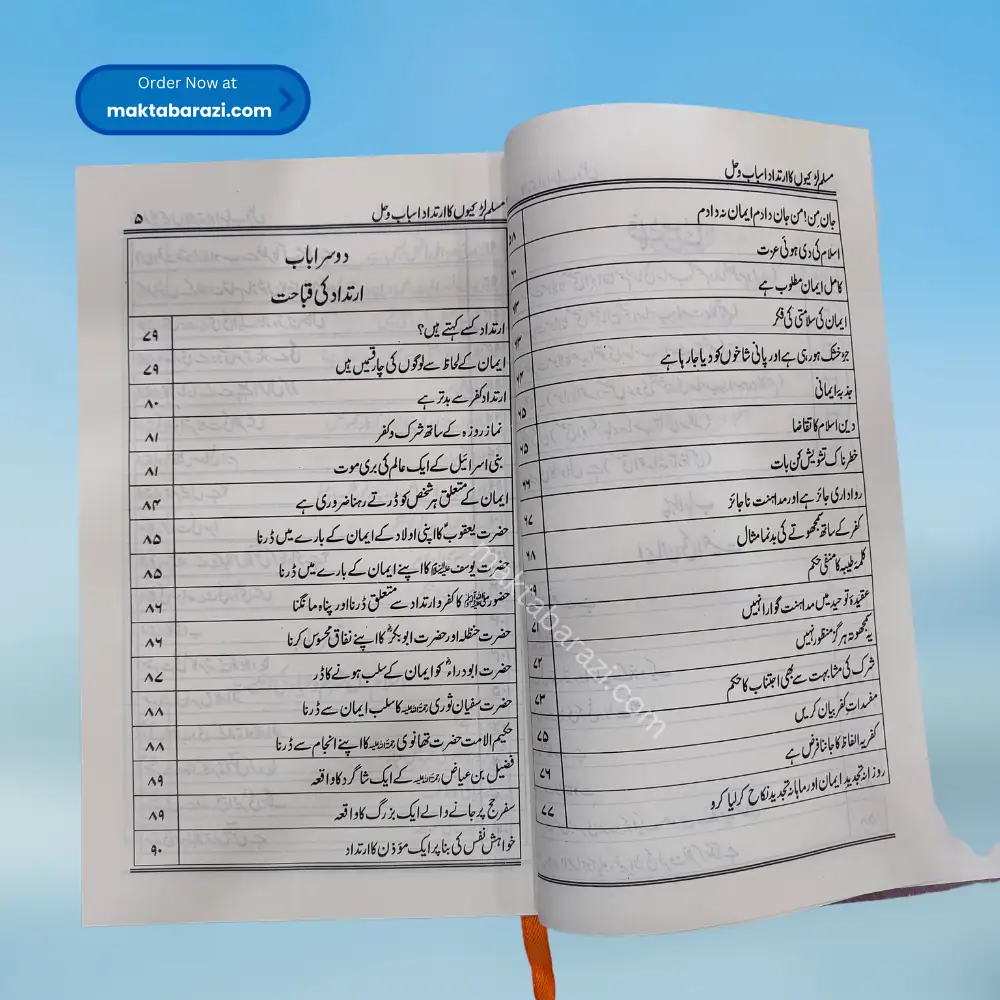 Order Now at
maktabarazi.com
مسلم لڑکیوں کا ارتداد اسباب و حل
جانِ من! من جان دادم ایمان نہ دادم
اسلام کی دی ہوئی عزت
کامل ایمان مطلوب ہے
ایمان کی سلامتی کی فکر
جڑ خشک ہو رہی ہے اور پانی شاخوں کو دیا جا رہا ہے ۶۴
جذبۂ ایمانی ۶۵
دین اسلام کا تقاضا ۶۵
خطرناک تشویش کن بات ۶۶
رواداری جائز ہے اور مداہنت ناجائز ۶۷
کفر کے ساتھ سمجھوتے کی بدنما مثال ۶۸
کلمۂ طیبہ کا منفی حکم
عقیدۂ توحید میں مداہنت گوارا نہیں ۷۱
یہ سمجھوتہ ہرگز منظور نہیں ۷۲
شرک کی مشابہت سے بھی اجتناب کا حکم ۷۳
مفسداتِ کفر بیان کریں ۷۵
کفریہ الفاظ کا جاننا فرض ہے ۷۶
روزانہ تجدیدِ ایمان اور ماہانہ تجدیدِ نکاح کر لیا کرو ۷۷
مسلم لڑکیوں کا ارتداد اسباب و حل ۵
دوسرا باب
ارتداد کی قباحت
ارتداد کسے کہتے ہیں؟ ۷۹
ایمان کے لحاظ سے لوگوں کی چار قسمیں ہیں ۷۹
ارتداد کفر سے بدتر ہے ۸۰
نماز روزہ کے ساتھ شرک و کفر ۸۱
بنی اسرائیل کے ایک عالم کی بری موت ۸۱
ایمان کے متعلق ہر شخص کو ڈرتے رہنا ضروری ہے ۸۴
حضرت یعقوبؑ کا اپنی اولاد کے ایمان کے بارے میں ڈرنا ۸۵
حضرت یوسف علیہ السلام کا اپنے ایمان کے بارے میں ڈرنا ۸۵
حضور ﷺ کا کفر و ارتداد سے متعلق ڈرنا اور پناہ مانگنا ۸۶
حضرت حنظلہ اور حضرت ابوبکرؓ کا اپنے نفاق محسوس کرنا ۸۶
حضرت ابودرداءؓ کو ایمان کے سلب ہونے کا ڈر ۸۷
حضرت سفیان ثوری رحمۃ اللہ علیہ کا سلب ایمان سے ڈرنا ۸۸
حکیم الامت حضرت تھانوی رحمۃ اللہ علیہ کا اپنے انجام سے ڈرنا ۸۸
فضیل بن عیاض رحمۃ اللہ علیہ کے ایک شاگرد کا واقعہ ۸۹
سفر حج پر جانے والے ایک بزرگ کا واقعہ ۸۹
خواہش نفس کی بنا پر ایک مؤذن کا ارتداد ۹۰
maktabarazi.com